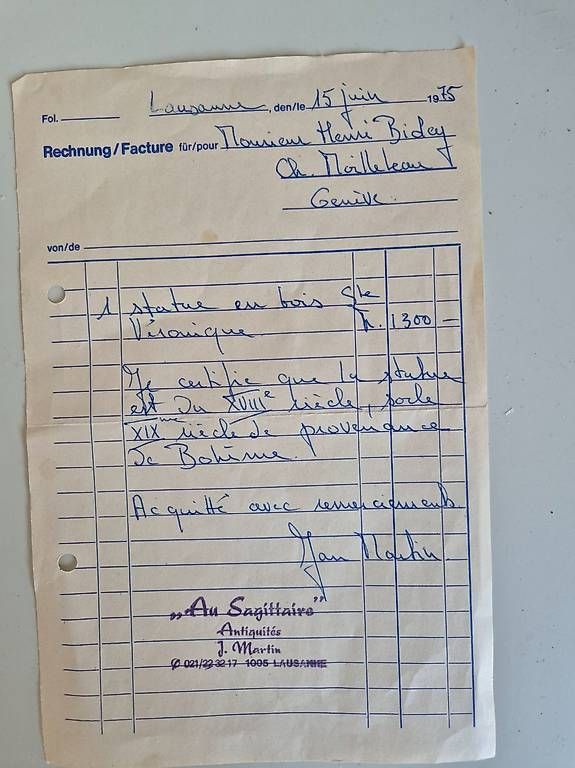 Fol. Lausanne, den/le 15 juin 1975
Rechnung/Facture für/pour Monsieur Henri Bidey
Ch. Moilleteau
Genève.
von/de
1 statue en bois Ste
Véronique Fr. 1300 —
Je certifie que la statue
est du XVIIIe siècle, socle
XIXme siècle de provenance
de Bohême.
Acquitté avec remerciements
Jean Martin
„Au Sagittaire"
Antiquités
J. Martin
✆ 021/23 32 17 1005 LAUSANNE